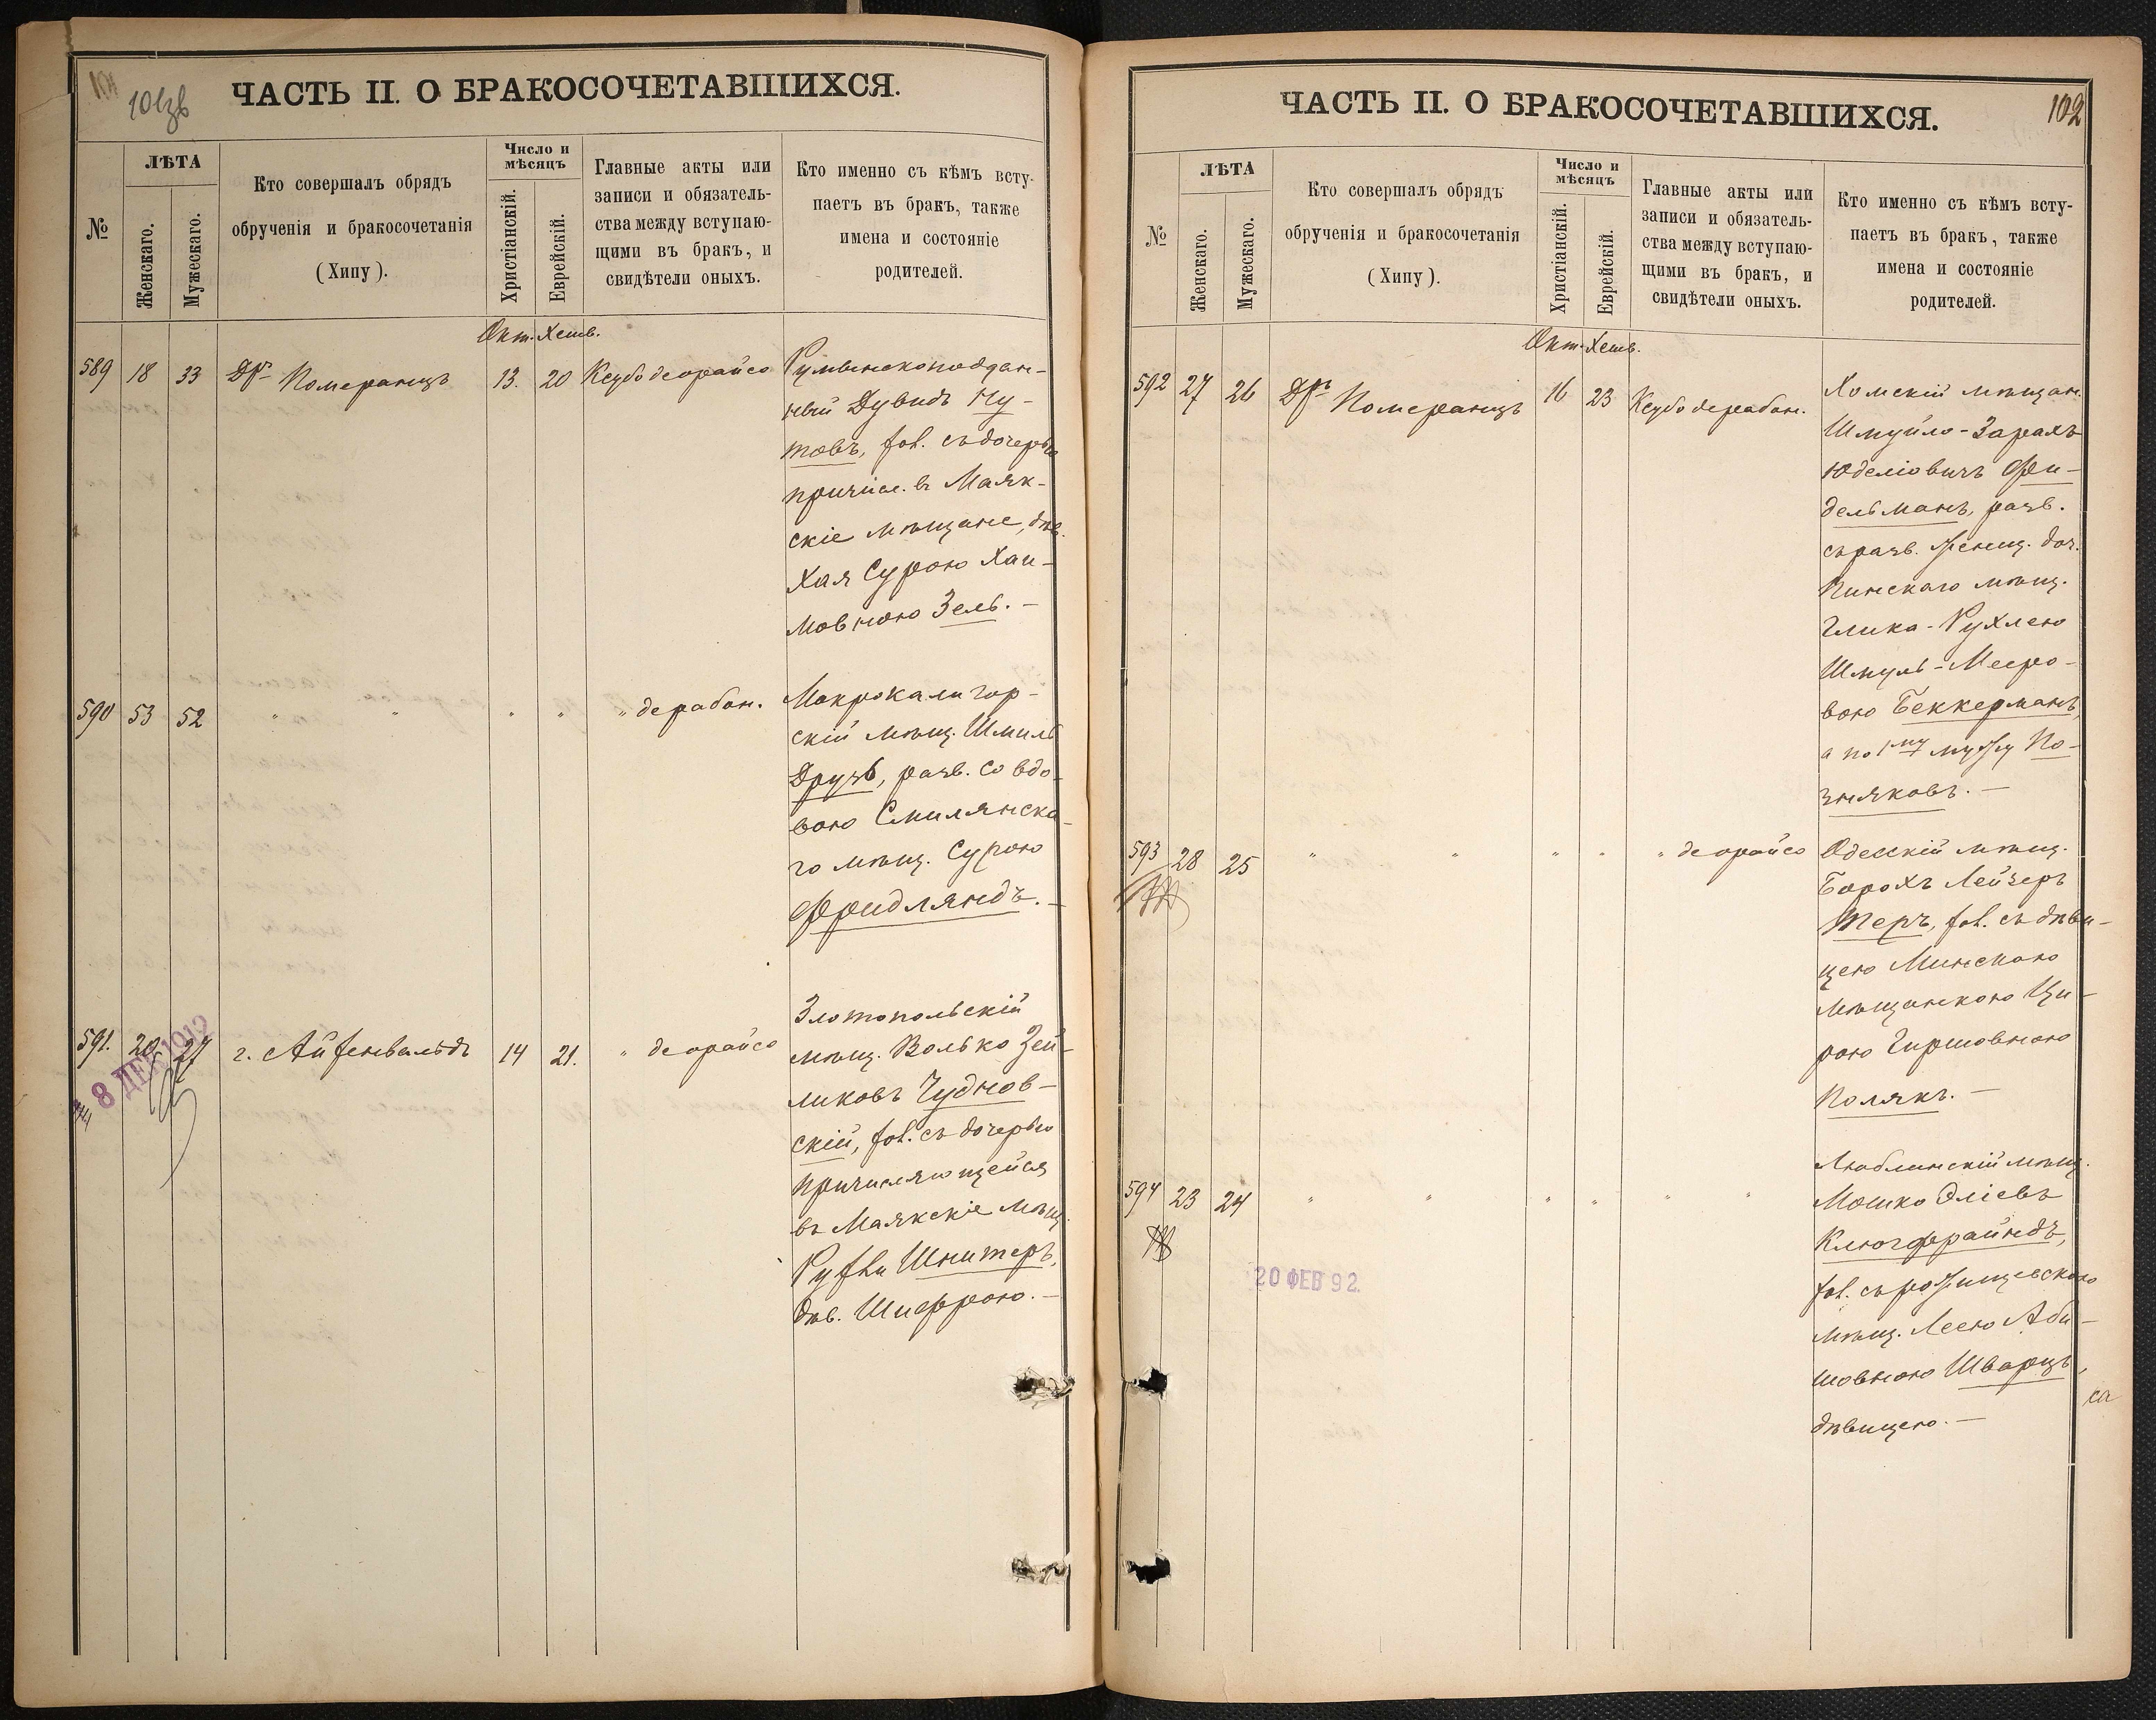 101зв
ЧАСТЬ II. О БРАКОСОЧЕТАВШИХСЯ.
№
ЛѢТА
Женскаго.
Мужескаго.
Кто совершалъ обрядъ
обрученія и бракосочетанія
(Хипу).
Число и
мѣсяцъ
Христіанскій.
Еврейскій.
Главные акты или
записи и обязатель-
ства между вступаю-
щими въ бракъ, и
свидѣтели оныхъ.
Кто именно съ кѣмъ всту-
паетъ въ бракъ, также
имена и состояніе
родителей.
Окт. Хешв.
589 18 33 Др. Померанцъ 13. 20 Ксубо деорайсо
Румынскоподдан-
ный Дувидъ Ну-
товъ, хол. съ дочерью
причисл. в Маяк-
скіе мѣщане, дѣв.
Хая Сурою Хаи-
мовною Зельв. —
590 53 52 " " " " " дерабон.
Мокрокалигор-
скій мѣщ. Шмиль
Друзь, разв. со вдо-
вою Смилянска-
го мѣщ. Сурою
Фридляндъ. —
591. 20 27 г. Айзенвальдъ 14 21. " деорайсо
8 ДЕК 1912
Злотопольскій
мѣщ. Волько Зей-
ликовъ Чуднов-
скій, хол. съ дочерью
причисляющейся
въ Маякскіе мѣщ.
Рухли Шнитеръ,
дѣв. Шифрою. —
102
ЧАСТЬ II. О БРАКОСОЧЕТАВШИХСЯ.
№
ЛѢТА
Женскаго.
Мужескаго.
Кто совершалъ обрядъ
обрученія и бракосочетанія
(Хипу).
Число и
мѣсяцъ
Христіанскій.
Еврейскій.
Главные акты или
записи и обязатель-
ства между вступаю-
щими въ бракъ, и
свидѣтели оныхъ.
Кто именно съ кѣмъ всту-
паетъ въ бракъ, также
имена и состояніе
родителей.
Окт. Хешв.
592 27 26 Дръ Померанцъ 16 23 Ксубо дерабон.
Хомскій мѣщан.
Шмуйло-Зарахъ
Юделіовичъ Фи-
дельманъ, разв.
съ разв. женщ. доч.
Пинскаго мѣщ.
Глика-Рухлею
Шмуль-Мееро-
вою Беккерманъ,
а по 1му мужу По-
зняковъ. —
593 28 25 " " " " " деорайсо
Одесскій мѣщ.
Борохъ Лейзеръ
Теръ, хол. съ дѣви-
цею Минскою
мѣщанкою Ци-
рою Гиршовною
Полякъ. —
594 23 24 " " " " " "
20 ФЕВ 92.
Люблинскій мѣщ.
Мошко Эліевъ
Клюгфрайндъ,
хол. съ рожищевскою
мѣщ. Леею Аби-
шовною Шварцъ,
дѣвицею. —